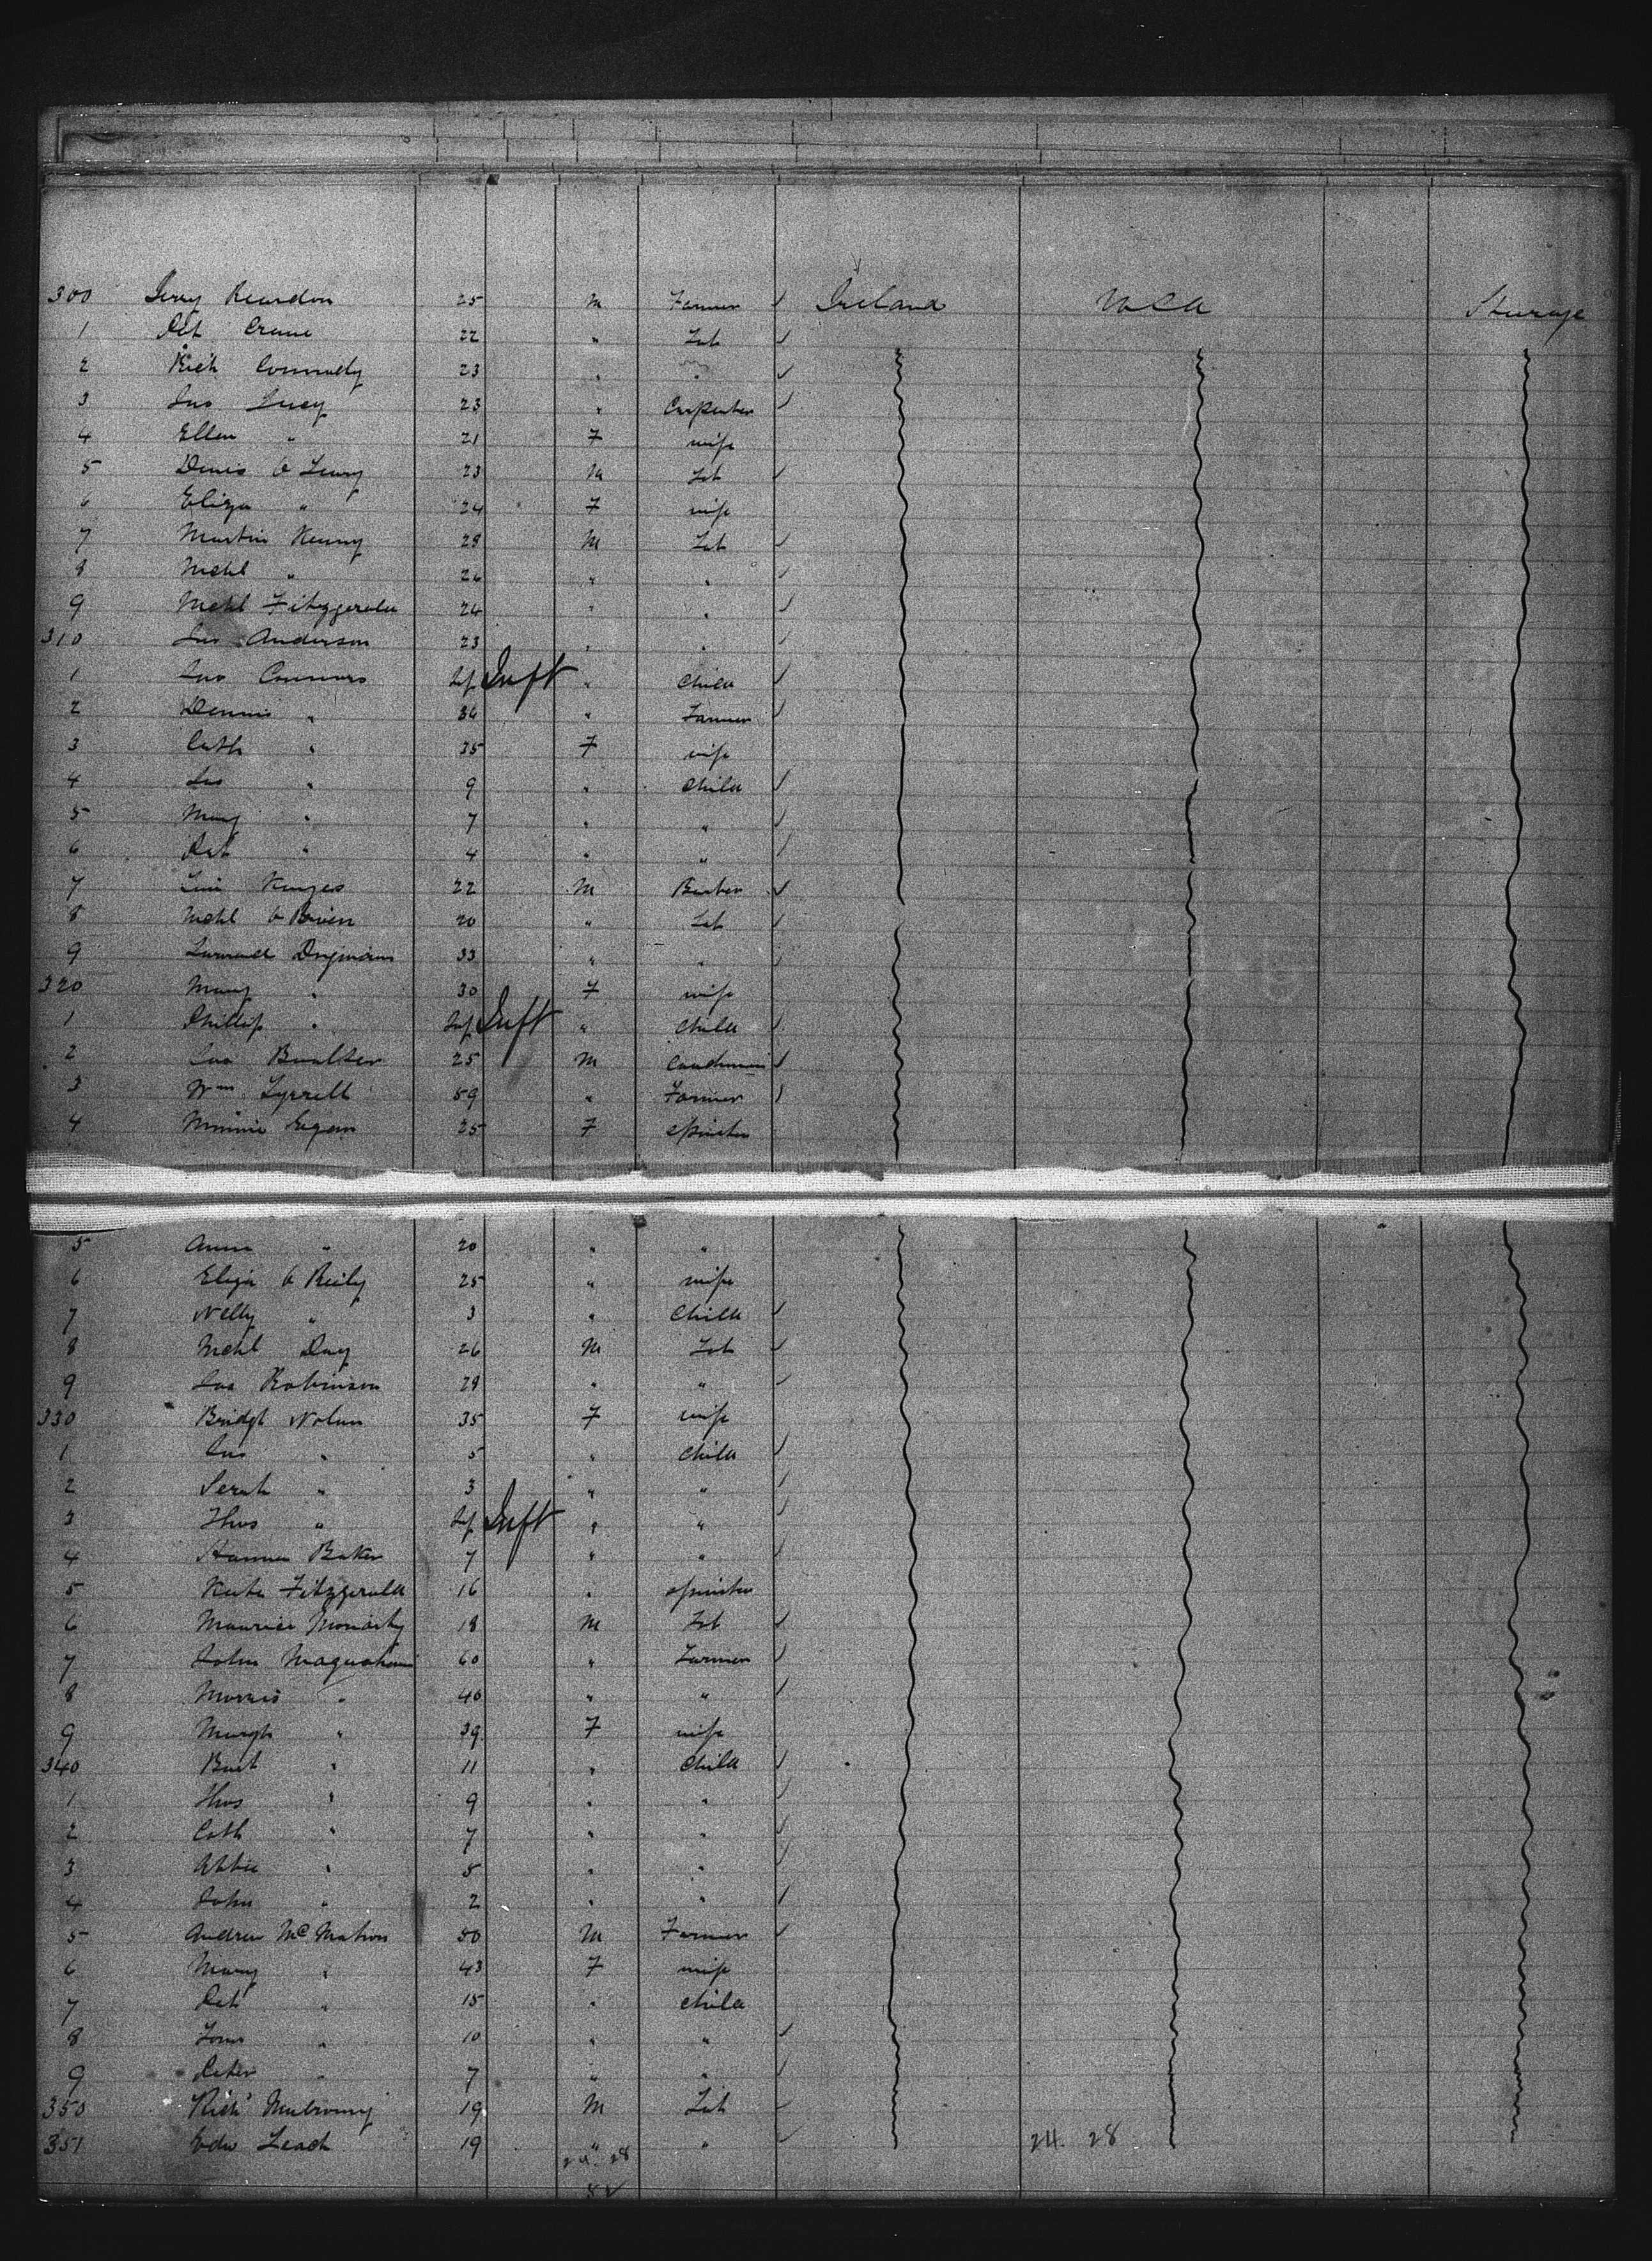 300 Jerry Reardon 25 M Farmer Ireland USA Steerage
1 Pat Crane 22 " Lab
2 Rich Connolly 23 " "
3 Jas Lucy 23 " Carpenter
4 Ellen " 21 F wife
5 Denis O Leary 23 M Lab
6 Eliza " 24 F wife
7 Martin Kenny 28 M Lab
8 Michl " 26 " "
9 Michl Fitzgerald 24 " "
310 Jas Anderson 23 " "
1 Jno Connors Inf Inft " Child
2 Dennis " 36 " Farmer
3 Cath " 35 F wife
4 Jas " 9 " Child
5 Mary " 7 " "
6 Pat " 4 " "
7 22 M Barber
8 Michl O Brien 20 " Lab
9 33 " "
320 Mary " 30 F wife
1 Phillip " Inf Inft " Child
2 25 M
3 Wm Tyrrell 59 " Farmer
4 Minnie Egan 25 F spinster
5 Anne " 20 " "
6 Eliza O Reily 25 " wife
7 Nelly " 3 " Child
8 Michl Day 26 M Lab
9 Jas Robinson 29 " "
330 Bridgt Nolan 35 F wife
1 Jas " 5 " Child
2 Sarah " 3 " "
3 Thos " Inf Inft " "
4 Hanna Baker 7 " "
5 Kate Fitzgerald 16 " spinster
6 Maurice Moriarty 18 M Lab
7 John 60 " Farmer
8 Morris " 40 " "
9 Margt " 39 F wife
340 Bart " 11 " Child
1 Thos " 9 " "
2 Cath " 7 " "
3 Abbie " 5 " "
4 John " 2 " "
5 Andrew McMahon 50 M Farmer
6 Mary " 43 F wife
7 Pat " 15 " child
8 " 10 " "
9 Peter " 7 " "
350 Rich 19 M Lab
351 Edw Leach 19 " " 24. 28
24. 28